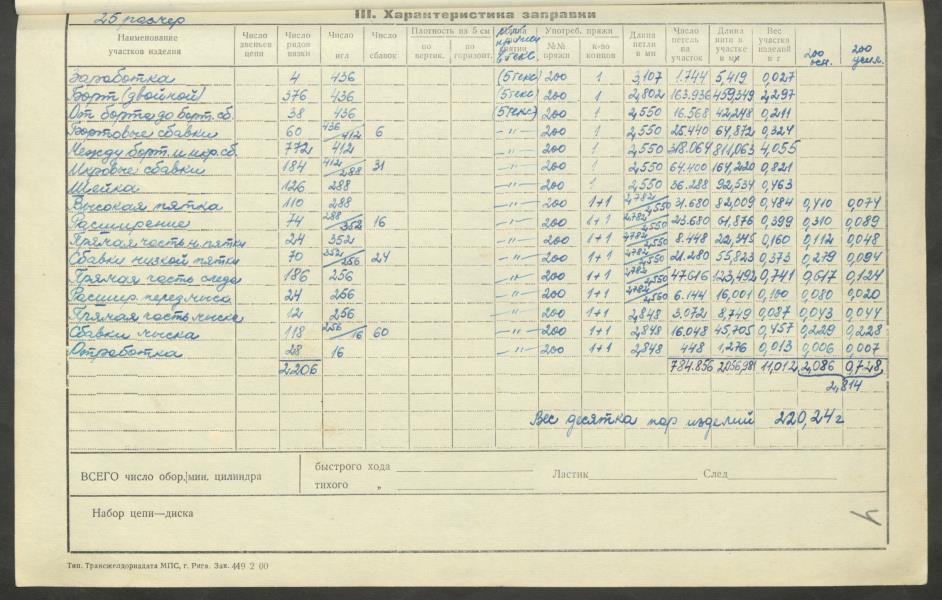 25 размер
III. Характеристика заправки
Наименование участков изделия | Число двеньев цепи | Число рядов вязки | Число игл | Число сбавок | Плотность из 5 см по вертик. | по горизонт. | Употреб. пряжи №№ пряжи | к-во концов | Длина петли в мм | Число петель на участок | Длина нити в участке в мм | Вес участка изделий в г | 200 осн. | 200 усил.
Заработка 4 436 (5 текс) 200 1 3,107 1.744 5,419 0,027
Борт (двойной) 376 436 (5 текс) 200 1 2,802 163.936 459,349 2,297
От борта до борт. сб. 38 436 (5 текс) 200 1 2,550 16.568 42,248 0,211
Бортовые сбавки 60 436/412 6 -"- 200 1 2,550 25.440 64,872 0,324
Между борт. и икр. сб. 772 412 -"- 200 1 2,550 318.064 811,063 4,055
Икровые сбавки 184 412/288 31 -"- 200 1 2,550 64.400 164,220 0,821
Шейка 126 288 -"- 200 1 2,550 36.288 92,534 0,463
Высокая пятка 110 288 -"- 200 1+1 2,782/2,550 31.680 82,009 0,484 0,410 0,074
Расширение 74 288/352 16 -"- 200 1+1 2,782/2,550 23.680 61,876 0,399 0,310 0,089
Прямая часть н. пятки 24 352 -"- 200 1+1 2,782/2,550 8.448 22,345 0,160 0,112 0,048
Сбавки низкой пятки 70 352/256 24 -"- 200 1+1 2,782/2,550 21.280 55,823 0,373 0,279 0,094
Прямая часть следа 186 256 -"- 200 1+1 2,782/2,550 47.616 123,492 0,741 0,617 0,124
Расшир. перед мыска 24 256 -"- 200 1+1 2,782/2,550 6.144 16,001 0,100 0,080 0,020
Прямая часть мыска 12 256 -"- 200 1+1 2,848 3.072 8,749 0,087 0,043 0,044
Сбавки мыска 118 256/16 60 -"- 200 1+1 2,848 16.048 45,705 0,457 0,229 0,228
Отработка 28 16 -"- 200 1+1 2,848 448 1,276 0,013 0,006 0,007
2.206 784.856 2056,981 11,012 2,086 0,728
2,814
Вес десятка пар изделий 220,24 г
ВСЕГО число обор./мин. цилиндра
быстрого хода
тихого „
Ластик
След
Набор цепи—диска
4
Тип. Трансжелдориздата МПС, г. Рига. Зак. 449 2 00